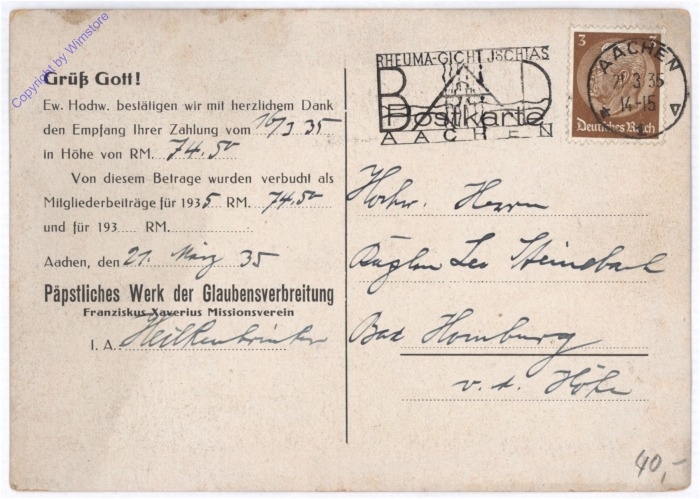 Copyright by Wimstore
Grüß Gott!
Ew. Hodw. bestätigen wir mit herzlichem Dank
den Empfang Ihrer Zahlung vom 16/3 35
in Höhe von RM. 74.50
Von diesem Betrage wurden verbucht als
Mitgliederbeiträge für 1935 RM. 74.50
und für 193 RM.
Aachen, den 21. März 35
Päpstliches Werk der Glaubensverbreitung
Franziskus Xaverius Missionsverein
I. A.
RHEUMA-GICHT JSCHIAS
BAD
Postkarte
AACHEN
3 3
Deutsches Reich
AACHEN
21.3.35
14-15
Hochw. Herrn
Kaplan Leo Steinebach
Bad Homburg
v. d. Höhe
40,-